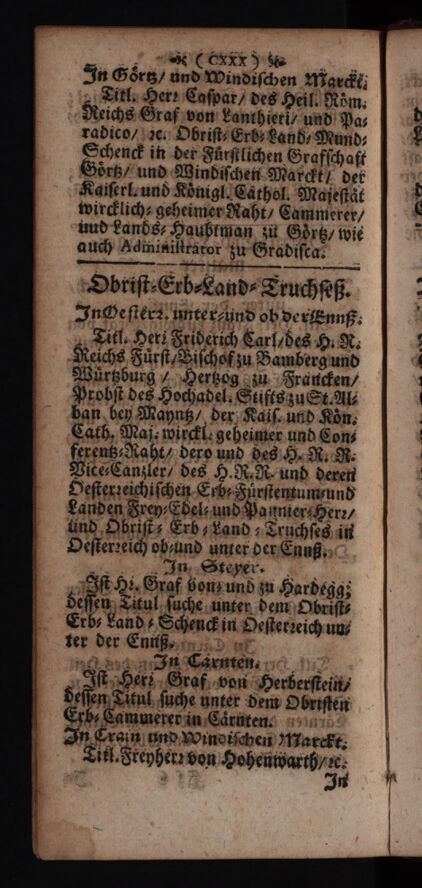 ( CXXX )
In Görtz/ und Windischen Marckt.
Titl. Herr Caspar/ des Heil. Röm.
Reichs Graf von Lanthieri/ und Pa-
radico/ ꝛc. Obrist-Erb-Land-Mund-
Schenck in der Fürstlichen Grafschaft
Görtz/ und Windischen Marckt/ der
Kaiserl. und Königl. Cathol. Majestät
wircklich-geheimer Raht/ Cammerer/
und Lands-Haubtman zu Görtz/ wie
auch Administrator zu Gradisca.
Obrist-Erb-Land-Truchseß.
In Oesterr. unter- und ob der Ennß.
Titl. Herr Friderich Carl/ des H. R.
Reichs Fürst/ Bischof zu Bamberg und
Würtzburg / Hertzog zu Francken/
Probst des Hochadel. Stifts zu St. Al-
ban bey Mayntz/ der Kais. und Kön.
Cath. Maj. wirckl. geheimer und Con-
ferentz-Raht/ dero und des H. R. R.
Vice-Cantzler/ des H. R. R. und deren
Oesterreichischen Erb-Fürstentum- und
Landen Frey-Edel- und Pannier-Herr/
und Obrist-Erb-Land-Truchses in
Oesterreich ob- und unter der Ennß.
In Steyer.
Ist Hr. Graf von- und zu Hardegg;
dessen Titul suche unter dem Obrist-
Erb-Land-Schenck in Oesterreich un-
ter der Ennß.
In Cärnten.
Ist Herr Graf von Herberstein/
dessen Titul suche unter dem Obristen
Erb-Cammerer in Cärnten.
In Crain und Windischen Marckt.
Titl. Freyherr von Hohenwarth/ ꝛc.
In